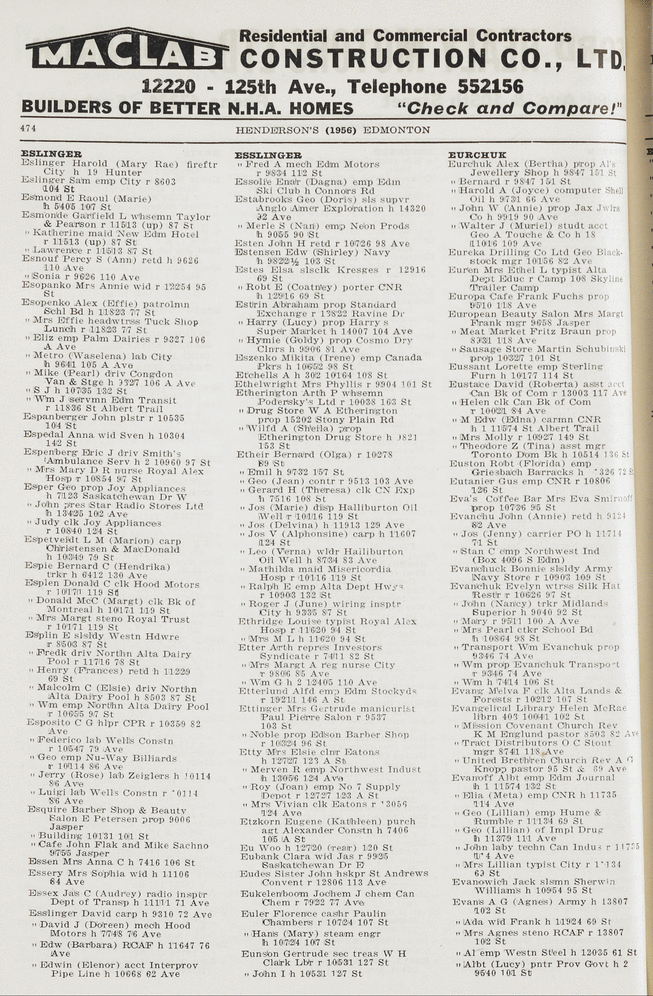 MACLAB
Residential and Commercial Contractors
CONSTRUCTION CO., LTD.
12220 - 125th Ave., Telephone 552156
BUILDERS OF BETTER N.H.A. HOMES "Check and Compare!"
474 HENDERSON'S (1956) EDMONTON
ESLINGER
Eslinger Harold (Mary Rae) fireftr
City h 19 Hunter
Eslinger Sam emp City r 8603
104 St
Esmond E Raoul (Marie)
h 5405 107 St
Esmonde Garfield L whsemn Taylor
& Pearson r 11513 (up) 87 St
" Katherine maid New Edm Hotel
r 11513 (up) 87 St
" Lawrence r 11513 87 St
Esnouf Percy S (Ann) retd h 9626
110 Ave
" Sonia r 9626 110 Ave
Esopanko Mrs Annie wid r 12254 95
St
Esopenko Alex (Effie) patrolmn
Schl Bd h 11823 77 St
" Mrs Effie headwtrss Tuck Shop
Lunch r 11823 77 St
" Eliz emp Palm Dairies r 9327 106
A Ave
" Metro (Waselena) lab City
h 9641 105 A Ave
" Mike (Pearl) driv Congdon
Van & Stge h 9327 106 A Ave
" S J h 10735 132 St
" Wm J servmn Edm Transit
r 11836 St Albert Trail
Espanberger John plstr r 10535
104 St
Espedal Anna wid Sven h 10304
142 St
Espenberg Eric J driv Smith's
Ambulance Serv h 2 10960 97 St
" Mrs Mary D R nurse Royal Alex
Hosp r 10854 97 St
Esper Geo prop Joy Appliances
h 7123 Saskatchewan Dr W
" John pres Star Radio Stores Ltd
h 13425 102 Ave
" Judy clk Joy Appliances
r 10840 124 St
Espetveidt L M (Marion) carp
Christensen & MacDonald
h 10349 79 St
Espie Bernard C (Hendrika)
trkr h 6412 130 Ave
Esplen Donald C clk Hood Motors
r 10171 119 St
" Donald McC (Margt) clk Bk of
Montreal h 10171 119 St
" Mrs Margt steno Royal Trust
r 10171 119 St
Esplin E slsldy Westn Hdwre
r 8503 87 St
" Fredk driv Northn Alta Dairy
Pool r 11716 78 St
" Henry (Frances) retd h 11229
69 St
" Malcolm C (Elsie) driv Northn
Alta Dairy Pool h 8503 87 St
" Wm emp Northn Alta Dairy Pool
r 10655 97 St
Esposito C G hlpr CPR r 10359 82
Ave
" Federico lab Wells Constn
r 10547 79 Ave
" Geo emp Nu-Way Billiards
r 10114 86 Ave
" Jerry (Rose) lab Zeiglers h 10114
86 Ave
" Luigi lab Wells Constn r 10114
86 Ave
Esquire Barber Shop & Beauty
Salon E Petersen prop 9006
Jasper
" Building 10131 101 St
" Cafe John Flak and Mike Sachno
9755 Jasper
Essen Mrs Anna C h 7416 106 St
Essery Mrs Sophia wid h 11106
64 Ave
Essex Jas C (Audrey) radio insptr
Dept of Transp h 11111 71 Ave
Esslinger David carp h 9310 72 Ave
" David J (Doreen) mech Hood
Motors h 7748 76 Ave
" Edw (Barbara) RCAF h 11647 76
Ave
" Edwin (Elenor) acct Interprov
Pipe Line h 10668 62 Ave
ESSLINGER
" Fred A mech Edm Motors
r 9834 112 St
Essolie Enar (Dagna) emp Edm
Ski Club h Connors Rd
Estabrooks Geo (Doris) sls supvr
Anglo Amer Exploration h 14320
92 Ave
" Merle S (Nan) emp Neon Prods
h 9055 90 St
Esten John H retd r 10726 98 Ave
Estensen Edw (Shirley) Navy
h 9822½ 103 St
Estes Elsa slsclk Kresges r 12916
69 St
" Robt E (Coatney) porter CNR
h 12916 69 St
Estrin Abraham prop Standard
Exchange r 13822 Ravine Dr
" Harry (Lucy) prop Harry s
Super Market h 14007 104 Ave
" Hymie (Goldy) prop Cosmo Dry
Clnrs h 9906 81 Ave
Eszenko Mikita (Irene) emp Canada
Pkrs h 10652 98 St
Etchells A h 302 10164 108 St
Ethelwright Mrs Phyllis r 9904 101 St
Etherington Arth P whsemn
Podersky's Ltd r 10038 163 St
" Drug Store W A Etherington
prop 15202 Stony Plain Rd
" Wilfd A (Sheila) prop
Etherington Drug Store h 9821
153 St
Etheir Bernard (Olga) r 10278
89 St
" Emil h 9732 157 St
" Geo (Jean) contr r 9513 103 Ave
" Gerard H (Theresa) clk CN Exp
h 7516 108 St
" Jos (Marie) disp Halliburton Oil
Well r 10416 119 St
" Jos (Delvina) h 11913 129 Ave
" Jos V (Alphonsine) carp h 11607
124 St
" Leo (Verna) wldr Halliburton
Oil Well h 8734 83 Ave
" Mathilda maid Misericordia
Hosp r 10416 119 St
" Ralph E emp Alta Dept Hwys
r 10903 132 St
" Roger J (June) wiring insptr
City h 9335 87 St
Ethridge Louise typist Royal Alex
Hosp r 11620 94 St
" Mrs M L h 11620 94 St
Etter Arth repres Investors
Syndicate r 7411 82 St
" Mrs Margt A reg nurse City
r 9806 85 Ave
" Wm G h 2 12405 110 Ave
Etterlund Alfd emp Edm Stockyds
r 19211 146 A St
Ettinger Mrs Gertrude manicurist
Paul Pierre Salon r 9537
103 St
" Noble prop Edson Barber Shop
r 10324 96 St
Etty Mrs Elsie clnr Eatons
h 12727 123 A St
" Merven R emp Northwest Indust
h 13056 124 Ave
" Roy (Joan) emp No 7 Supply
Depot r 12727 123 A St
" Mrs Vivian clk Eatons r 13056
124 Ave
Etzkorn Eugene (Kathleen) purch
agt Alexander Constn h 7406
105 A St
Eu Woo h 12720 (rear) 120 St
Eubank Clara wid Jas r 9925
Saskatchewan Dr E
Eudes Sister John hskpr St Andrews
Convent r 12806 113 Ave
Eukelenboom Jochem J chem Can
Chem r 7922 77 Ave
Euler Florence cashr Paulin
Chambers r 10724 107 St
" Hans (Mary) steam engr
h 10724 107 St
Eunson Gertrude sec treas W H
Clark Lbr r 10531 127 St
" John I h 10531 127 St
EURCHUK
Eurchuk Alex (Bertha) prop Al's
Jewellery Shop h 9847 151 St
" Bernard r 9847 151 St
" Harold A (Joyce) computer Shell
Oil h 9731 66 Ave
" John W (Annie) prop Jax Jwlrs
Co h 9919 90 Ave
" Walter J (Muriel) studt acct
Geo A Touche & Co h 18
11016 109 Ave
Eureka Drilling Co Ltd Geo Black-
stock mgr 10156 82 Ave
Euren Mrs Ethel L typist Alta
Dept Educ r Camp 108 Skyline
Trailer Camp
Europa Cafe Frank Fuchs prop
9510 118 Ave
European Beauty Salon Mrs Margt
Frank mgr 9658 Jasper
" Meat Market Fritz Braun prop
8931 118 Ave
" Sausage Store Martin Schubinski
prop 10327 101 St
Eussant Lorette emp Sterling
Furn h 302 10164 108 St
Eustace David (Roberta) asst arct
Can Bk of Com r 13003 117 Ave
" Helen clk Can Bk of Com
r 10021 84 Ave
" M Edw (Edna) carmn CNR
h 1 11574 St Albert Trail
" Mrs Molly r 10927 149 St
" Theodore Z (Tina) asst mgr
Toronto Dom Bk h 10514 136 St
Euston Robt (Florida) emp
Griesbach Barracks h 326 72 S
Eutanier Gus emp CNR r 10806
126 St
Eva's Coffee Bar Mrs Eva Smirnoff
prop 10736 95 St
Evanchu John (Annie) retd h 9124
82 Ave
" Jos (Jenny) carrier PO h 11714
71 St
" Stan C emp Northwest Ind
(Box 4096 S Edm)
Evanchuck Bonnie slsldy Army
Navy Store r 10903 109 St
Evanchuk Evelyn wtrss Silk Hat
Restr r 10626 97 St
" John (Nancy) trkr Midlands
Superior h 9040 92 St
" Mary r 9511 100 A Ave
" Mrs Pearl ctkr School Bd
h 10864 98 St
" Transport Wm Evanchuk prop
9346 74 Ave
" Wm prop Evanchuk Transport
r 9346 74 Ave
" Wm h 7414 106 St
Evang Melva F clk Alta Lands &
Forests r 10212 107 St
Evangelical Library Helen McRae
librn 403 10041 102 St
" Mission Covenant Church Rev
K M Englund pastor 8503 82 Ave
" Tract Distributors O C Stout
mgr 8741 118 Ave
" United Brethren Church Rev A G
Knopp pastor 95 St & 69 Ave
Evanoff Albt emp Edm Journal
h 1 11574 132 St
" Elia (Meta) emp CNR h 11735
114 Ave
" Geo (Lillian) emp Hume &
Rumble r 11134 69 St
" Geo (Lillian) of Impl Drug
h 11379 111 Ave
" John laby techn Can Indus r 11735
114 Ave
" Mrs Lillian typist City r 11134
69 St
Evanowich Jack slsmn Sherwin
Williams h 10954 95 St
Evans A G (Agnes) Army h 13807
102 St
" Ada wid Frank h 11924 69 St
" Mrs Agnes steno RCAF r 13807
102 St
" Al emp Westn Steel h 12035 61 St
" Albt (Lucy) pntr Prov Govt h 2
9540 101 St